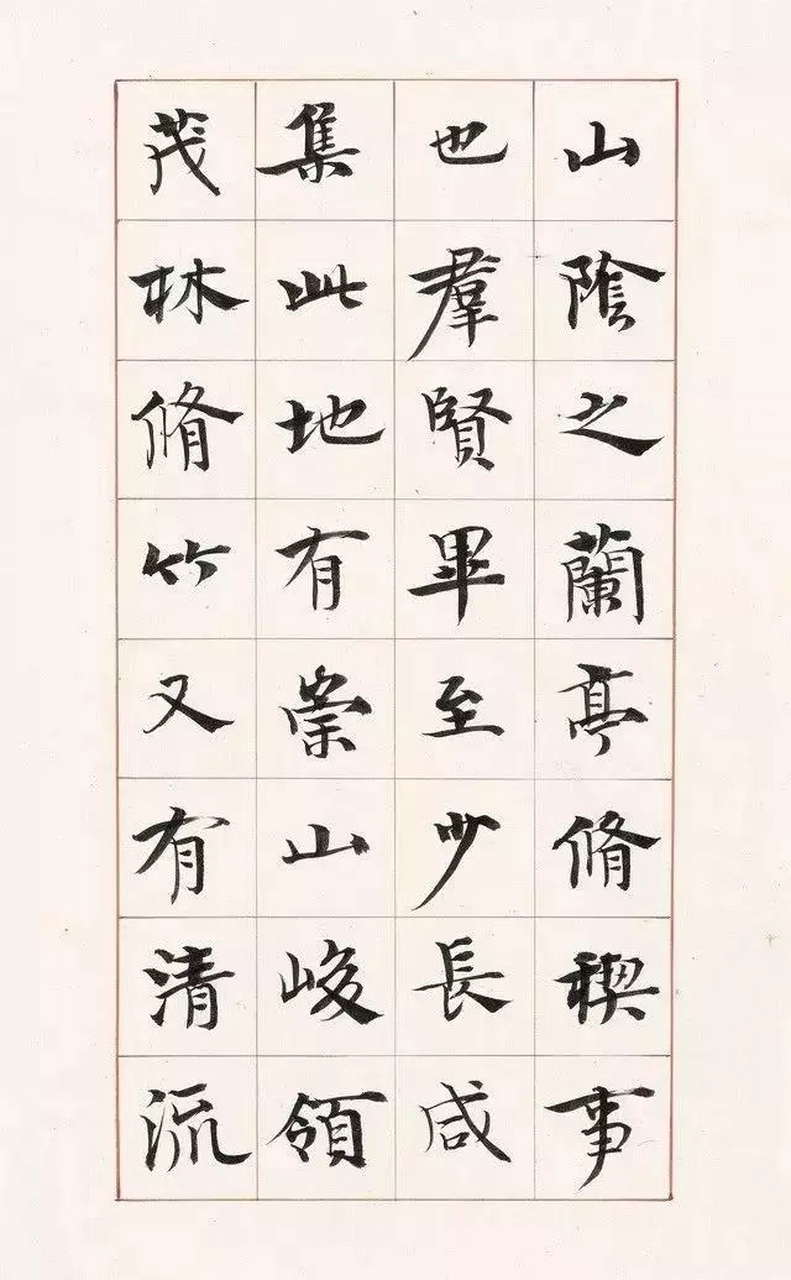 山陰之蘭亭脩禊事
也羣賢畢至少長咸
集此地有崇山峻領
茂林脩竹又有清流